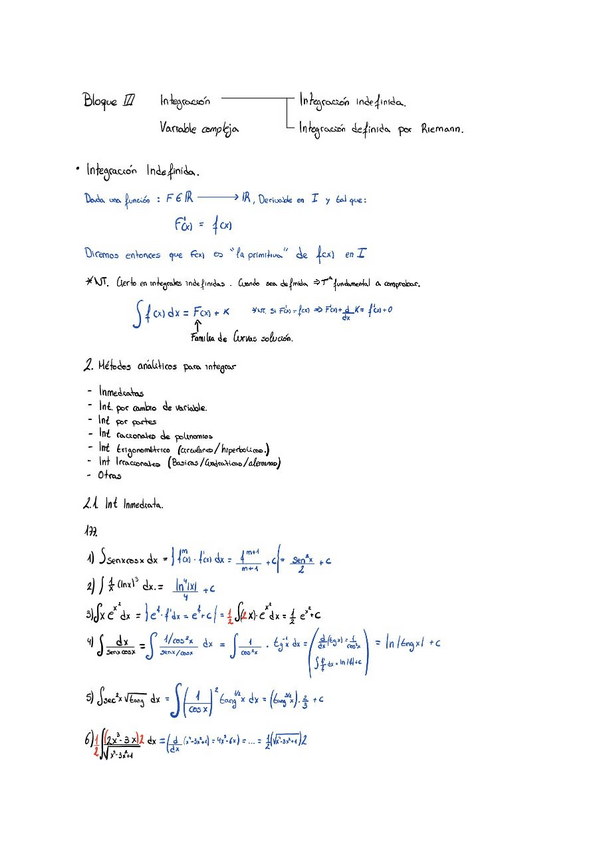 Bloque III Integración Integración indefinida.
Variable compleja Integración definida por Riemann.
• Integración Indefinida.
Dada una función : F ∈ ℝ ⟶ ℝ, Derivable en I y tal que:
F'(x) = f(x)
Diremos entonces que F(x) es "la primitiva" de f(x) en I
*NT. Cierto en integrales indefinidas. Cuando sea definida ⇒ Tª fundamental a comprobar.
∫f(x) dx = F(x) + K *NT. Si F'(x) = f(x) ⇒ F'(x) + d/dx K = f(x) + 0
↑
Familia de Curvas solución.
2. Métodos analíticos para integrar
- Inmediatas
- Int. por cambio de variable.
- Int por partes
- Int racionales de polinomios
- Int trigonométrica (circulares/hiperbólicas.)
- Int Irracionales (Basicas/Cuadraticas/
- Otras
2.1 Int Inmediata.
177.
1) ∫senxcosx dx = } f^m(x) · f'(x) dx = f^(m+1)/(m+1) + c | = sen²x/2 + c
2) ∫ 1/x (lnx)³ dx. = ln⁴|x|/4 + c
3) ∫x e^(x²) dx = } e^f · f' dx = e^f + c | = 1/2 ∫(2x) · e^(x²) dx = 1/2 e^(x²) + c
4) ∫ dx/(senx cosx) = ∫ (1/cos²x)/(senx/cosx) dx = ∫ 1/cos²x · tg⁻¹x dx = ( d/dx (tgx) = 1/cos²x ) = ln|tngx| + c
∫ f'/f dx = ln|f| + c
5) ∫sec²x √tang dx = ∫(1/cosx)² tang^(1/2) x dx = (tang^(3/2) x) · 2/3 + c
6) 1/2 ∫ (2x³-3x)2/√(x⁴-3x²+1) dx = ( d/dx (x⁴-3x²+1) = 4x³-6x) = ... = 1/2 (√x⁴-3x²+1) 2